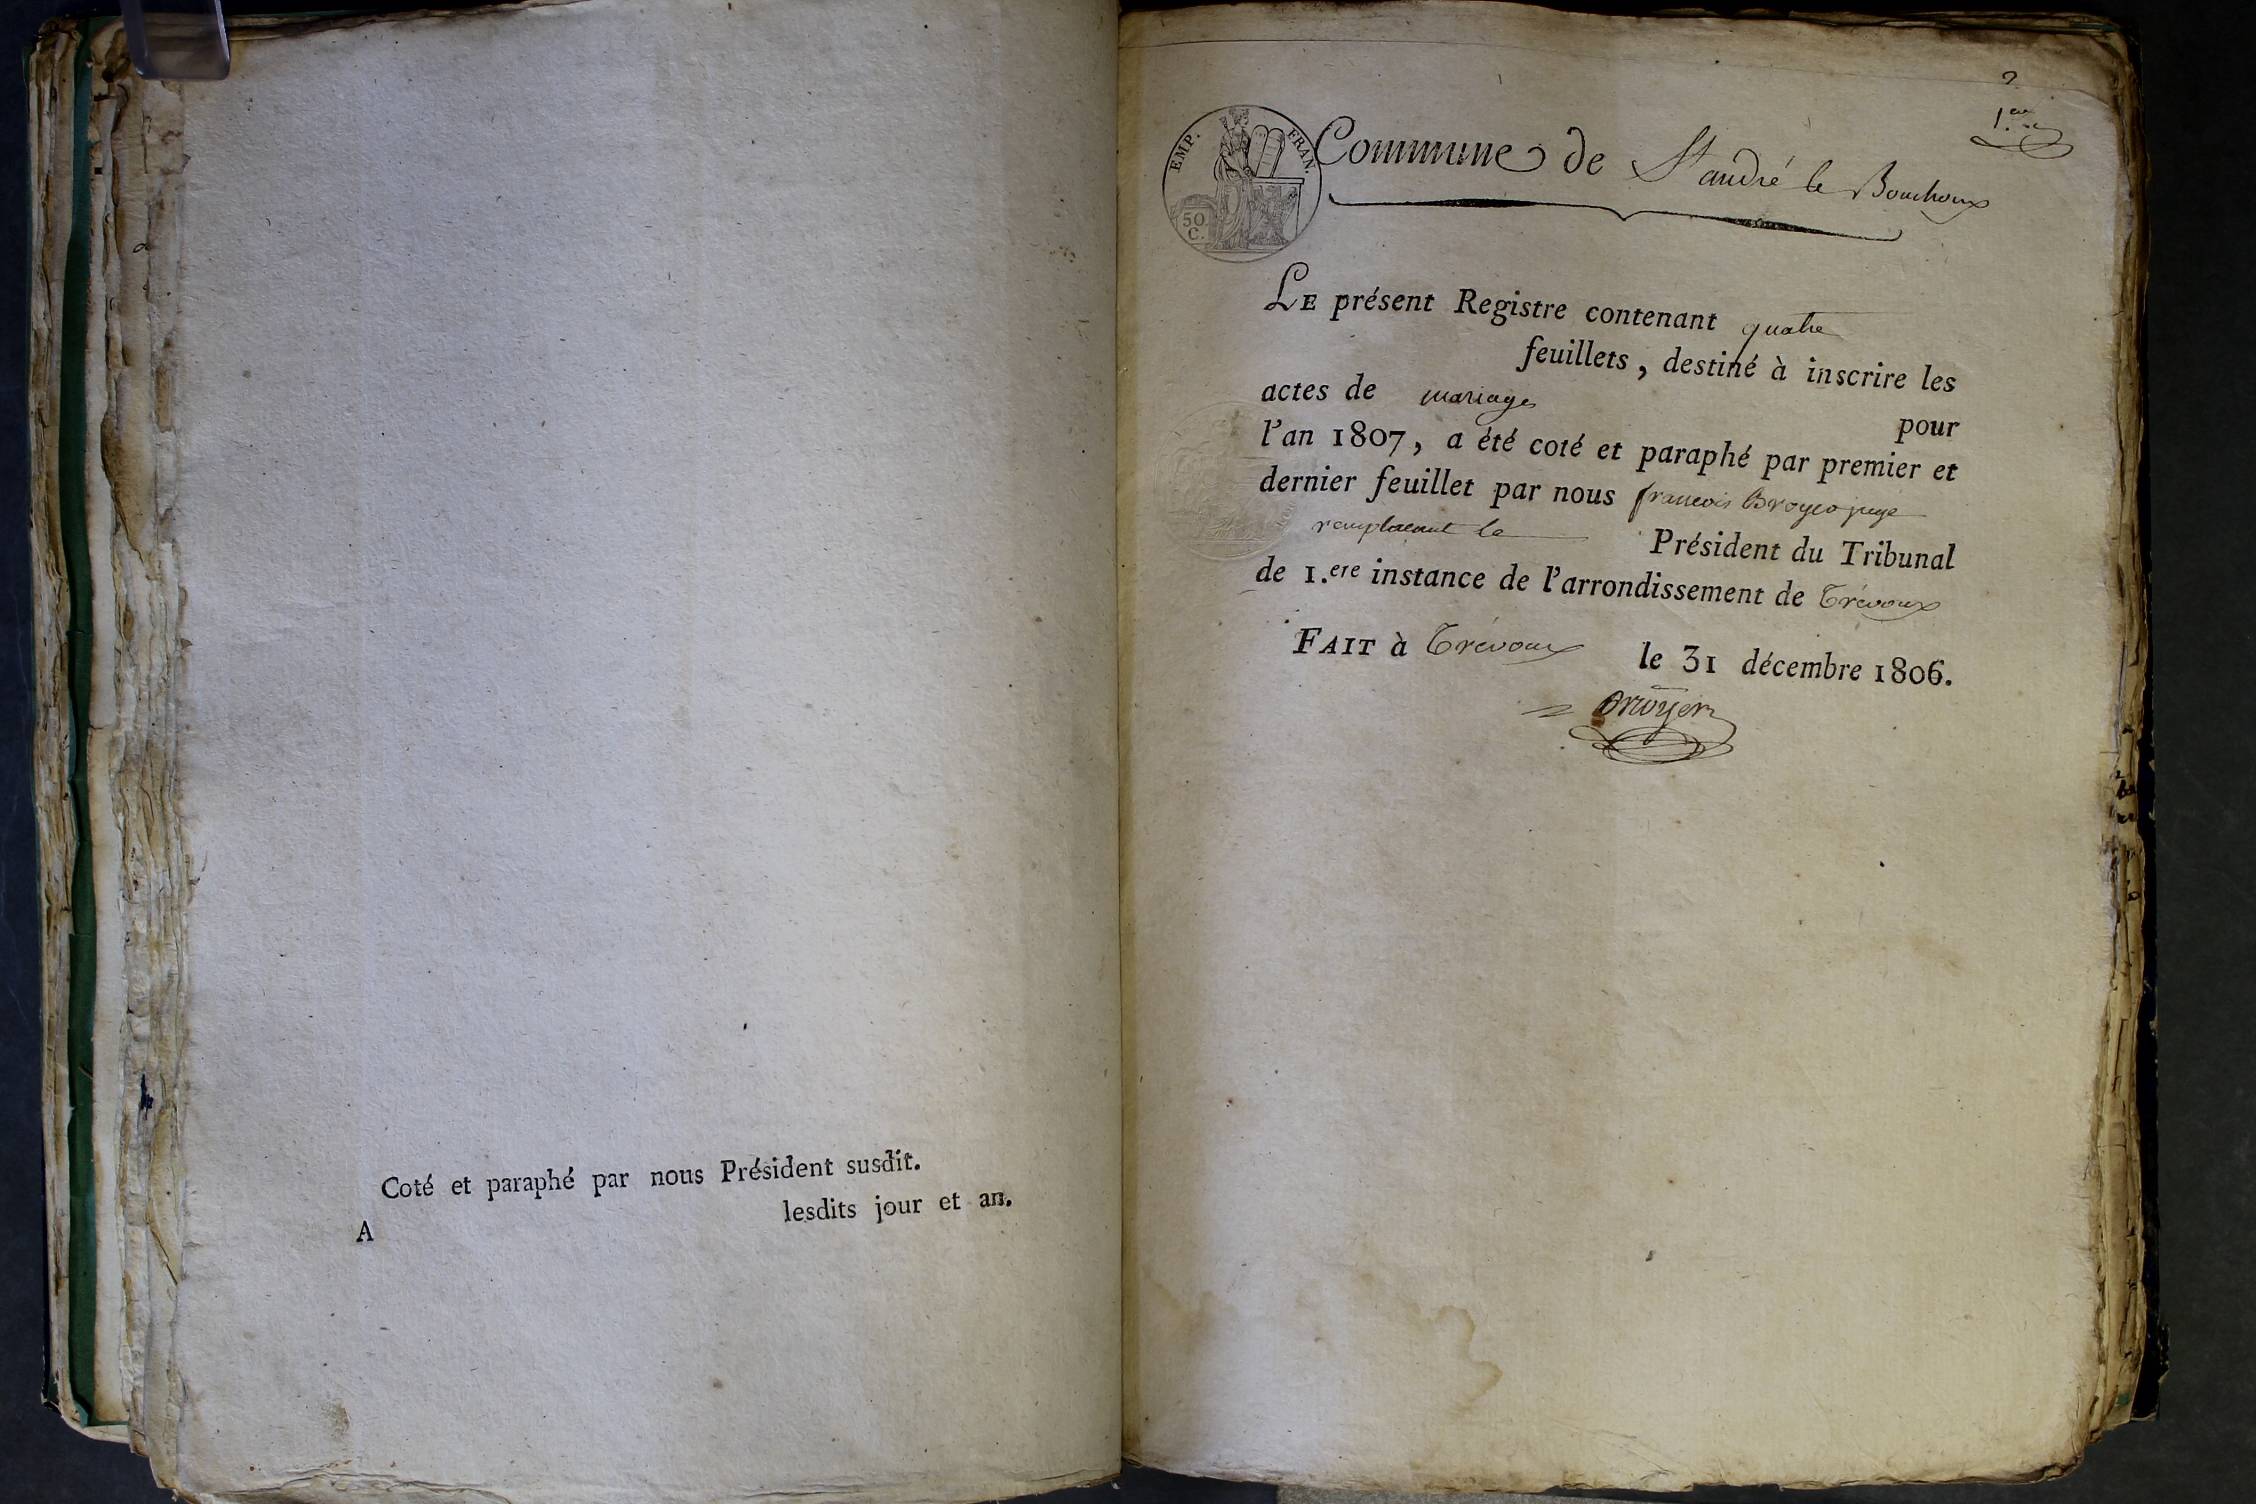 Coté et paraphé par nous Président susdit.
A lesdits jour et an.
2
1.er
EMP. FRAN.
50
C.
Commune de St andré le Bouchoux
LE présent Registre contenant quatre
feuillets, destiné à inscrire les
actes de mariages
pour
l'an 1807, a été coté et paraphé par premier et
dernier feuillet par nous francois juge
remplacant le Président du Tribunal
de 1.ere instance de l'arrondissement de Trévoux
FAIT à Trévoux le 31 décembre 1806.